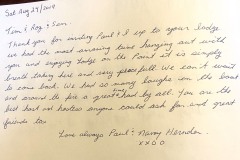 Sat Aug 24/2019
Tom & Roz & Sam
Thank you for inviting Paul & I up to your lodge
we had the most amazing time hanging out with
you and enjoying Lodge on the Point it is simply
breath taking here and very peacefull. We can't wait
to come back. We had so many laughs on the boat
and around the fire a great time had by all. You are the
best host and hostess anyone could ask for and great
friends too
Love always Paul & Nancy Herndon.
xxoo